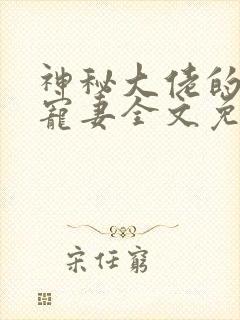 神秘大佬的
寵妻全文免
宋任窮